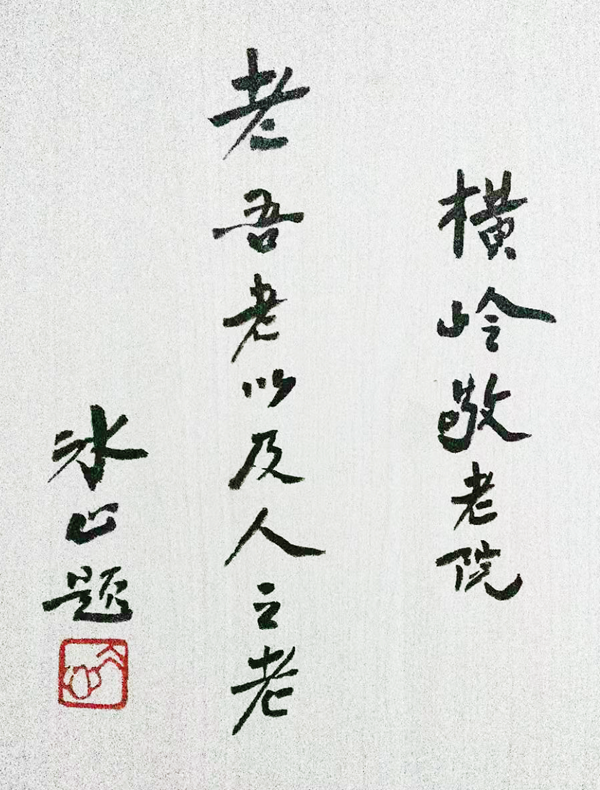 横岭敬老院
老吾老以及人之老
冰心题